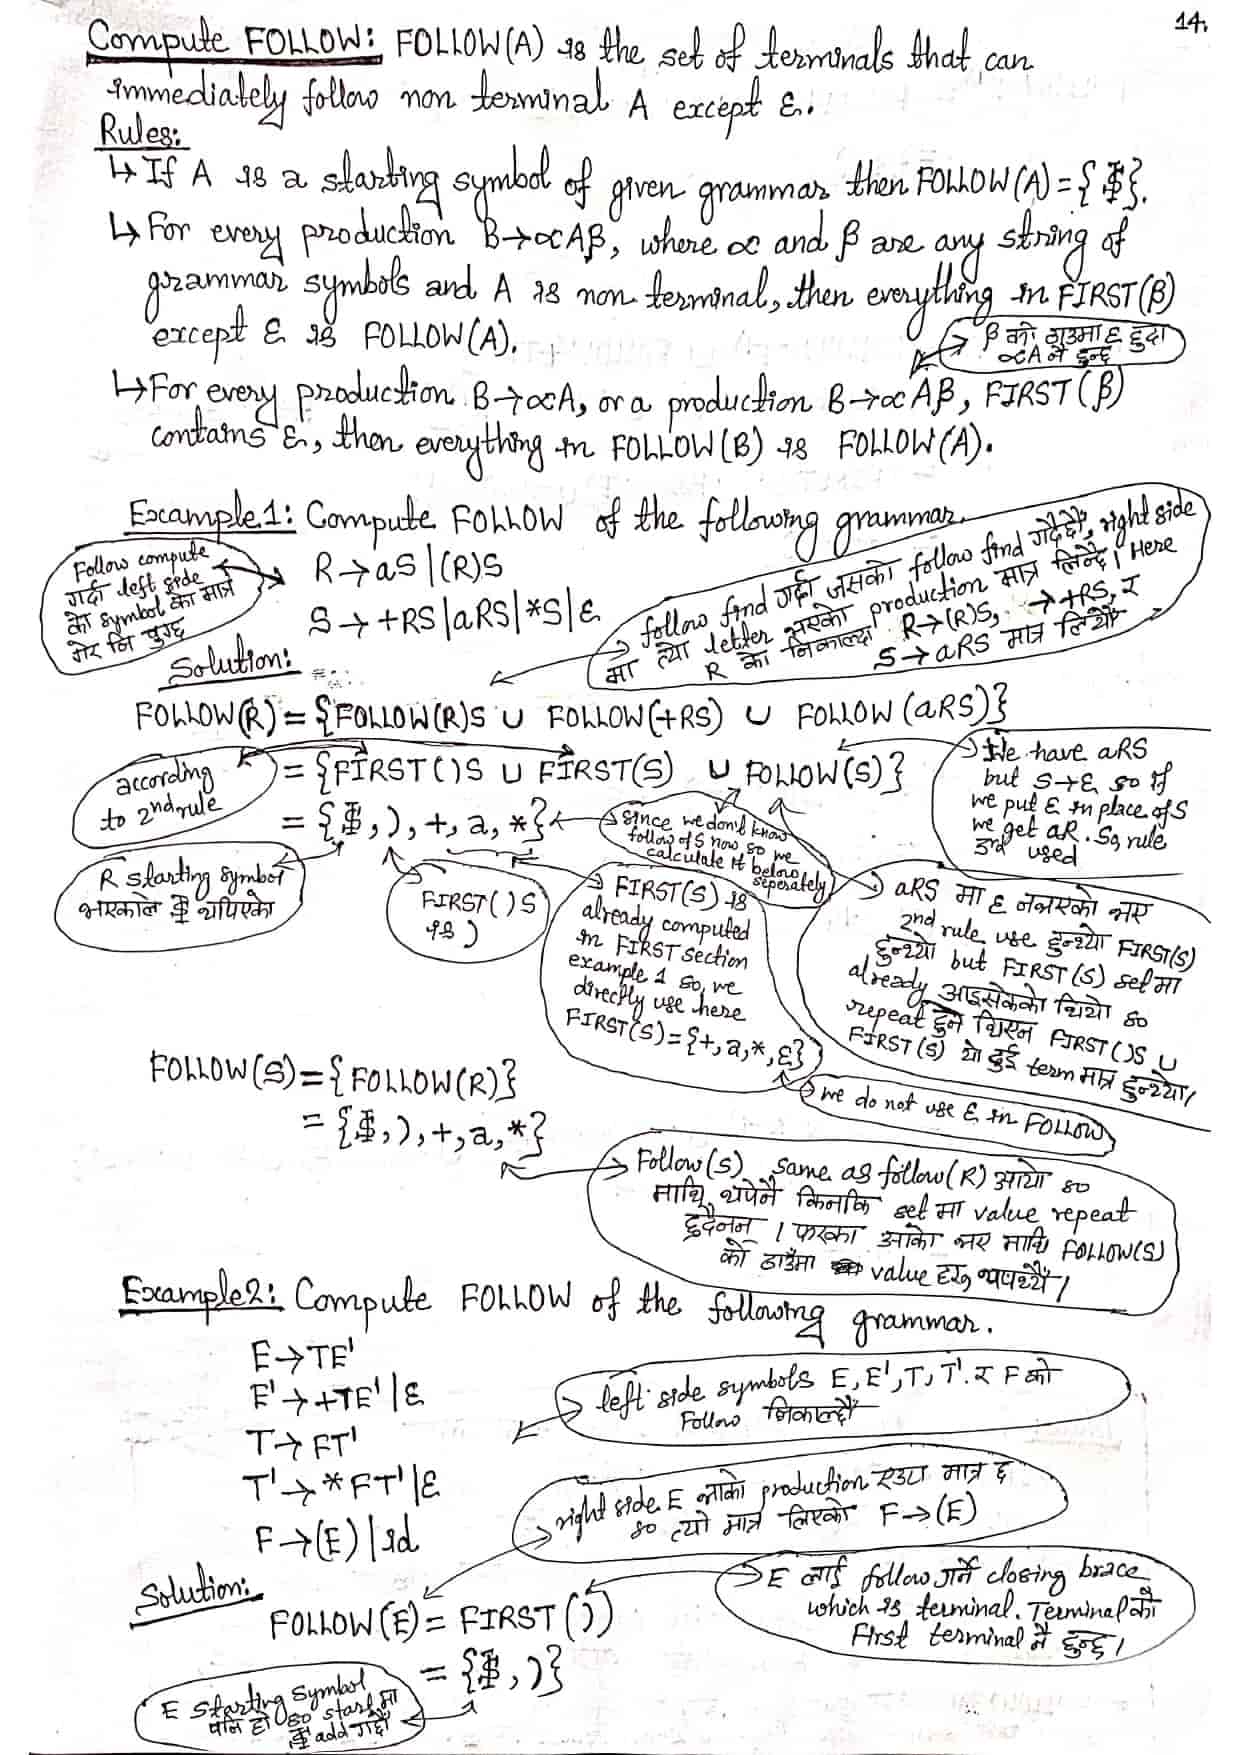 14.
Compute FOLLOW: FOLLOW(A) is the set of terminals that can
immediately follow non terminal A except ε.
Rules:
↳ If A is a starting symbol of given grammar then FOLLOW(A) = {$}.
↳ For every production B→αAβ, where α and β are any string of
grammar symbols and A is non terminal, then everything in FIRST(β)
except ε is FOLLOW(A).
β को ठाउँमा ε हुदा
αA नै हुन्छ
↳ For every production B→αA, or a production B→αAβ, FIRST(β)
contains ε, then everything in FOLLOW(B) is FOLLOW(A).
Example1: Compute FOLLOW of the following grammar.
R→aS|(R)S
S→+RS|aRS|*S|ε
Follow compute
गर्दा left side
को symbol का मात्र
गरे नि पुग्छ
follow find गर्दा जसको follow find गर्दैछौं, right side
मा त्यो letter भएको production मात्र लिन्छौं। Here
R को निकाल्दा R→(R)S, →+RS, र
S→aRS मात्र लियौं
Solution:
FOLLOW(R) = {FOLLOW(R)S ∪ FOLLOW(+RS) ∪ FOLLOW(aRS)}
= {FIRST()S ∪ FIRST(S) ∪ FOLLOW(S)}
= {$, ), +, a, *}
according
to 2nd rule
We have aRS
but S→ε so if
we put ε in place of S
we get aR. So, rule
3rd used
since we don't know
follow of S now so we
calculate it below
seperately
R starting symbol
भएकाले $ थपिएको
FIRST()S
is )
FIRST(S) is
already computed
in FIRST section
example 1 so, we
directly use here
FIRST(S)={+,a,*,ε}
aRS मा ε नभएको भए
2nd rule use हुन्थ्यो FIRST(S)
हुन्थ्यो but FIRST(S) set मा
already आइसकेको थियो so
repeat हुने थिएन FIRST()S ∪
FIRST(S) यो दुई term मात्र हुन्थ्यो।
we do not use ε in FOLLOW
FOLLOW(S) = {FOLLOW(R)}
= {$, ), +, a, *}
Follow(S) same as follow(R) आयो so
माथि थपेनौं किनकि set मा value repeat
हुदैनन। फरक आको भए माथि FOLLOW(S)
को ठाउँमा value हरु थप्थ्यौं।
Example2: Compute FOLLOW of the following grammar.
E→TE'
E'→+TE'|ε
T→FT'
T'→*FT'|ε
F→(E)|id
left side symbols E, E', T, T' र F को
Follow निकाल्छौं
right side E भाको production एउटा मात्र छ
so त्यो मात्र लिएको F→(E)
Solution:
FOLLOW(E) = FIRST())
= {$, )}
E लाई follow गर्ने closing brace
which is terminal. Terminal को
First terminal नै हुन्छ।
E starting symbol
पनि हो so start मा
$ add गर्छौं